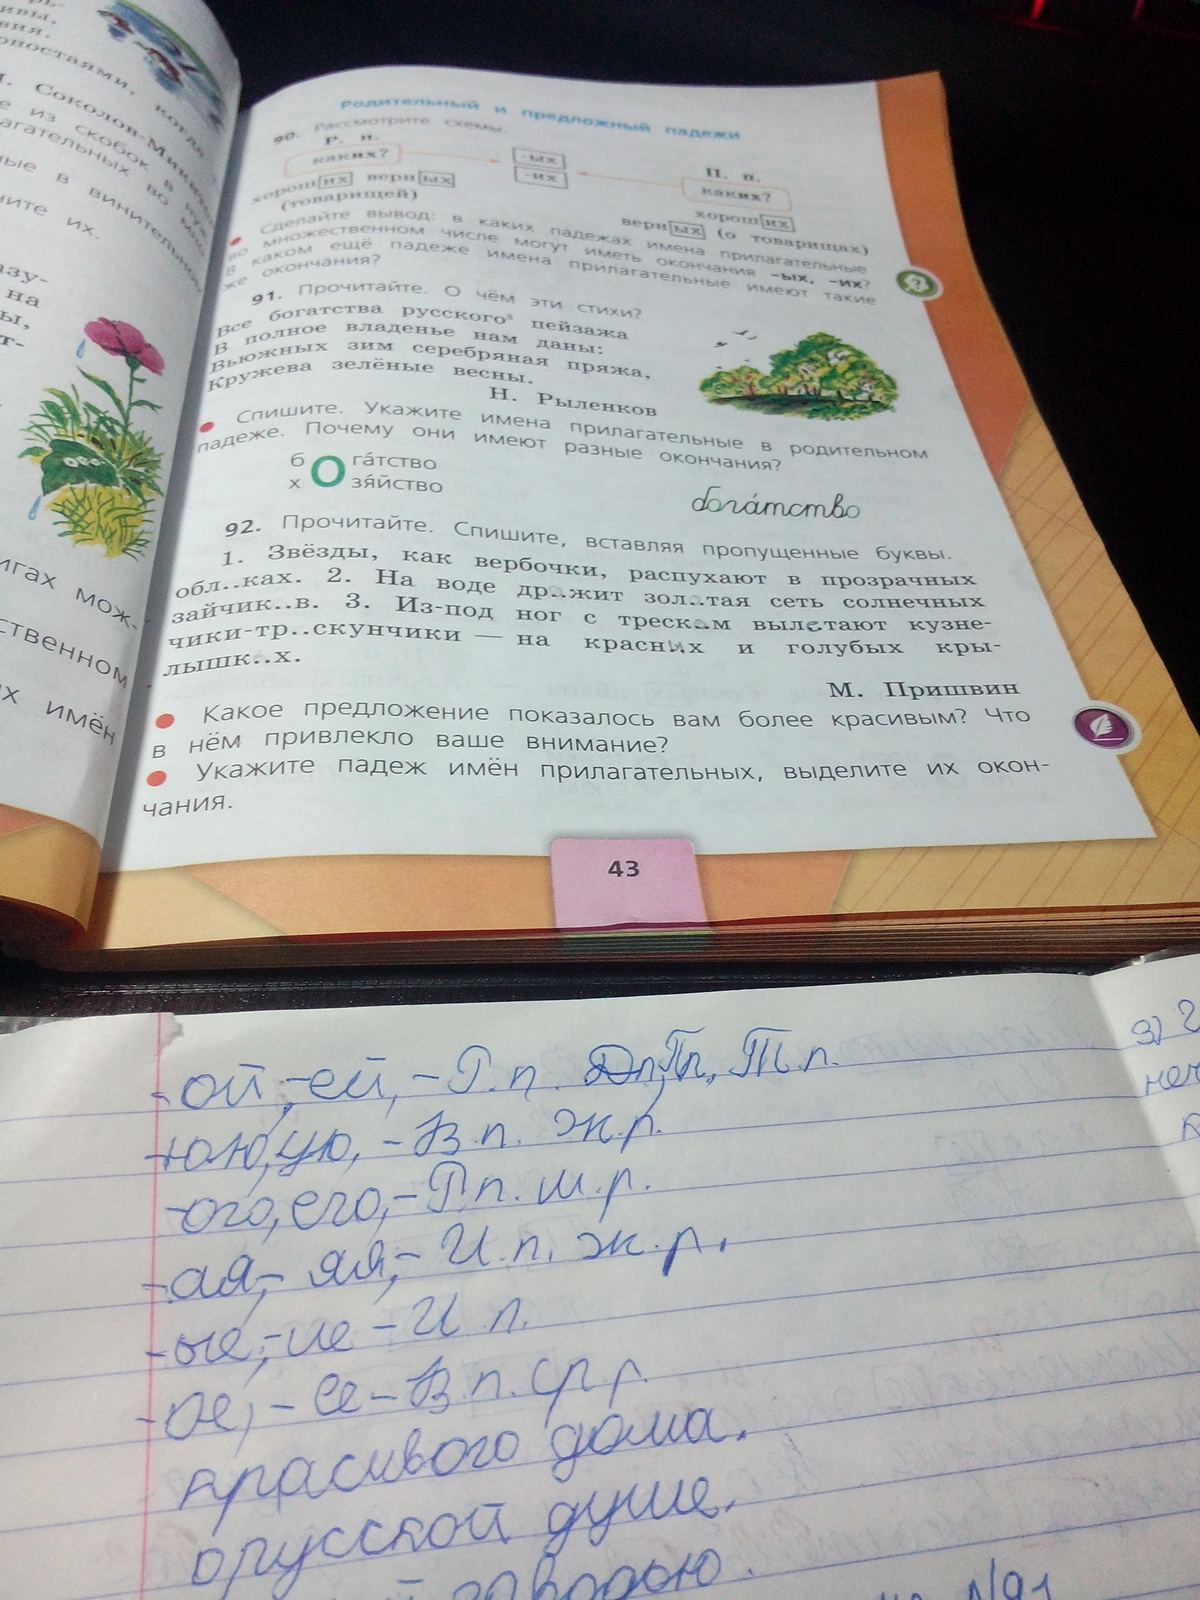 ивы,
вия.
рностаями, когда
И. Соколов-Микитов
е из скобок в
агательных во мно
ные в винительном
ните их.
азу-
на
ы,
т-
игах мож-
ственном
х имён
Родительный и предложный падежи
90. Рассмотрите схемы.
Р. п.
каких?
-ых
-их
П. п.
каких?
хороших верных
(товарищей)
хороших
верных (о товарищах)
Сделайте вывод: в каких падежах имена прилагательные
во множественном числе могут иметь окончания -ых, -их?
В каком ещё падеже имена прилагательные имеют такие
же окончания?
91. Прочитайте. О чём эти стихи?
Все богатства русского³ пейзажа
В полное владенье нам даны:
Вьюжных зим серебряная пряжа,
Кружева зелёные весны.
Н. Рыленков
Спишите. Укажите имена прилагательные в родительном
падеже. Почему они имеют разные окончания?
б О га́тство
х зя́йство
бога́тство
92. Прочитайте. Спишите, вставляя пропущенные буквы.
1. Звёзды, как вербочки, распухают в прозрачных
обл..ках. 2. На воде др..жит зол..тая сеть солнечных
зайчик..в. 3. Из-под ног с треском вылетают кузне-
чики-тр..скунчики — на красных и голубых кры-
лышк..х.
М. Пришвин
Какое предложение показалось вам более красивым? Что
в нём привлекло ваше внимание?
Укажите падеж имён прилагательных, выделите их окон-
чания.
43
-ой, -ей, - Р.п. Дп, Пп, Т.п.
-юю, ую, - В.п. ж.р.
-ого, его, - Р.п. м.р.
-ая, - яя, - И.п. ж.р.
-ые, -ие - И п.
-ое, - ее - В п. ср р.
красивого дома.
о русской душе.
№91
3)